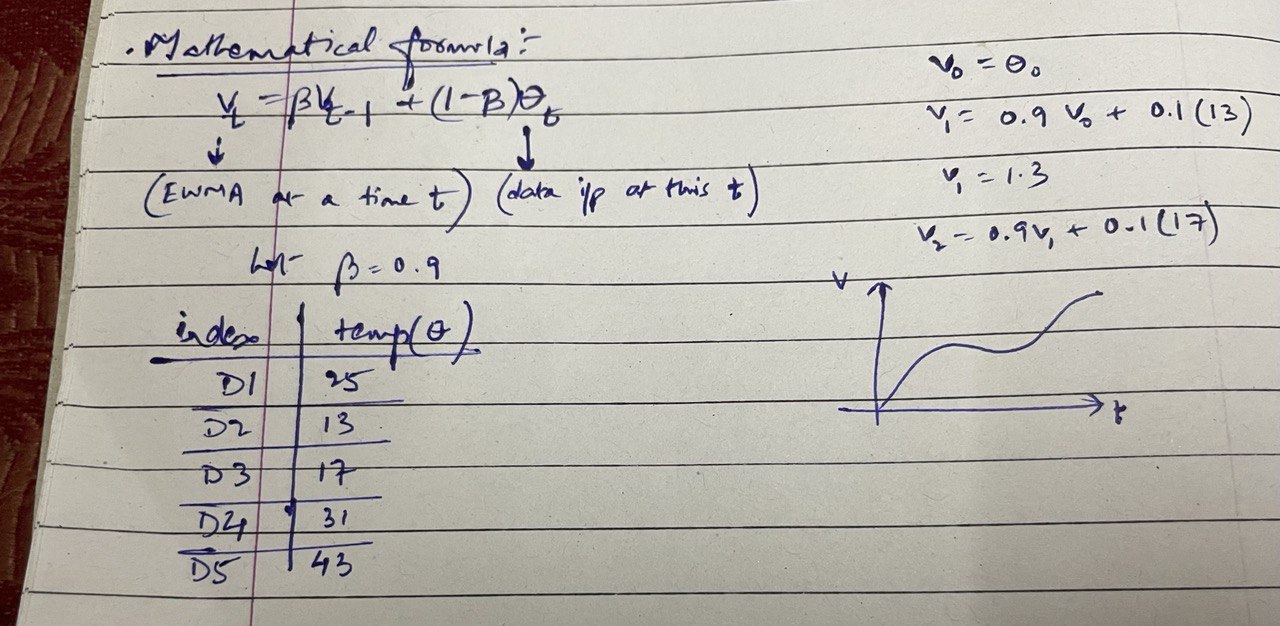 . Mathematical formula :-
V_t = βV_t-1 + (1-β)θ_t
(EWMA at a time t) (data i/p at this t)
let β = 0.9
index temp(θ)
D1 25
D2 13
D3 17
D4 31
D5 43
V_0 = θ_0
V_1 = 0.9 V_0 + 0.1(13)
V_1 = 1.3
V_2 = 0.9V_1 + 0.1(17)
V
t